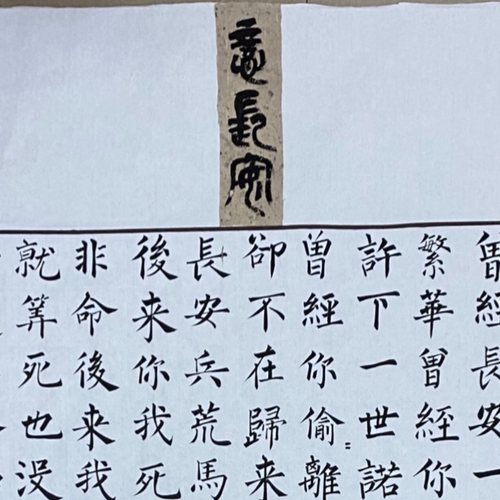 意長安
曾經長安一
繁華曾經你
許下一世諾
曾經你偷離
卻不在歸来
長安兵荒馬
後来你我死
非命後来我
就算死也没